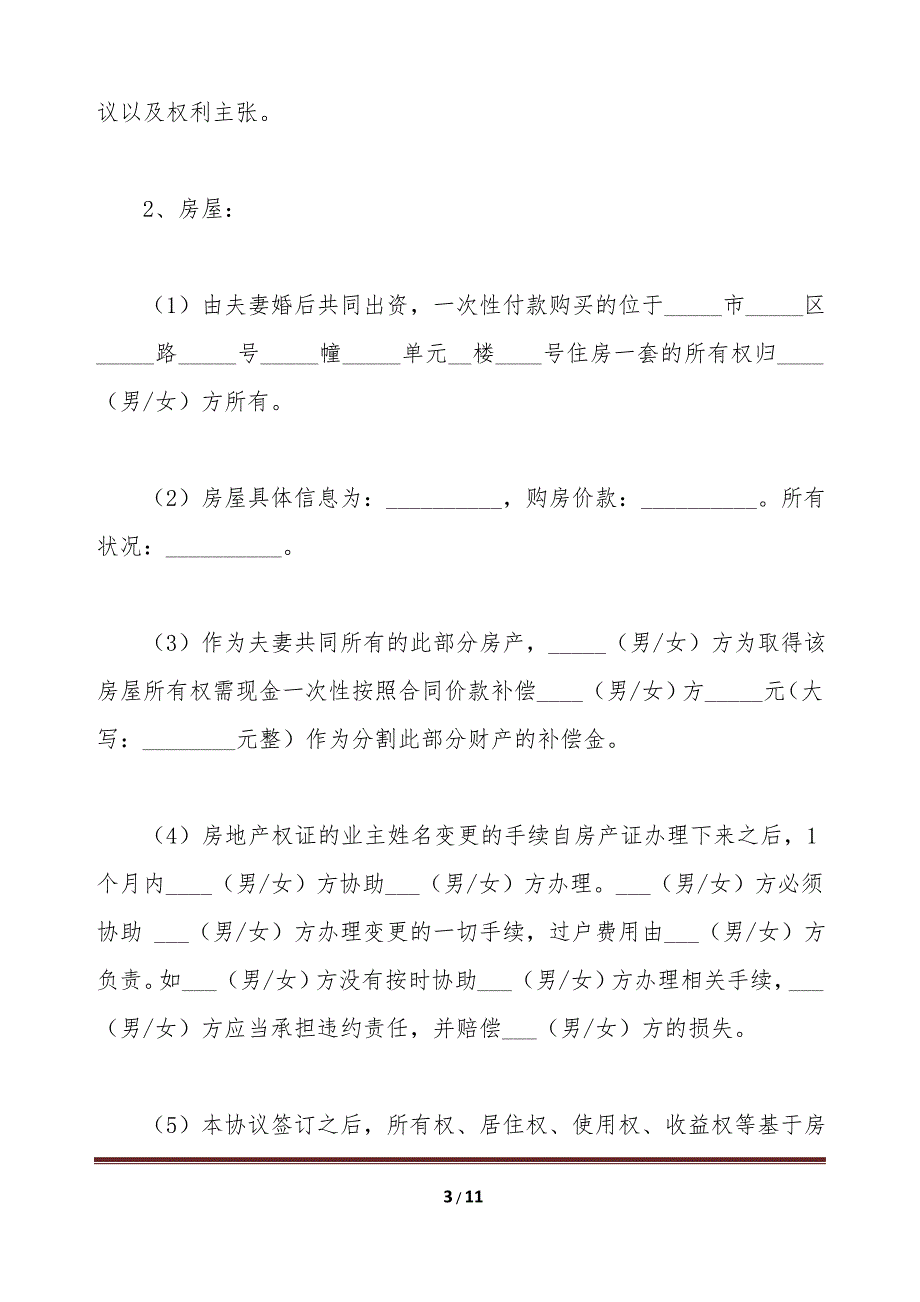 议以及权利主张。
2、房屋：
（1）由夫妻婚后共同出资，一次性付款购买的位于_____市_____区
_____路_____号_____幢_____单元__楼____号住房一套的所有权归____
（男/女）方所有。
（2）房屋具体信息为：__________，购房价款：__________。所有
状况：__________。
（3）作为夫妻共同所有的此部分房产，_____（男/女）方为取得该
房屋所有权需现金一次性按照合同价款补偿____（男/女）方_____元（大
写：________元整）作为分割此部分财产的补偿金。
（4）房地产权证的业主姓名变更的手续自房产证办理下来之后，1
个月内____（男/女）方协助___（男/女）方办理。___（男/女）方必须
协助 ___（男/女）方办理变更的一切手续，过户费用由___（男/女）方
负责。如___（男/女）方没有按时协助___（男/女）方办理相关手续，___
（男/女）方应当承担违约责任，并赔偿___（男/女）方的损失。
（5）本协议签订之后，所有权、居住权、使用权、收益权等基于房
3 / 11